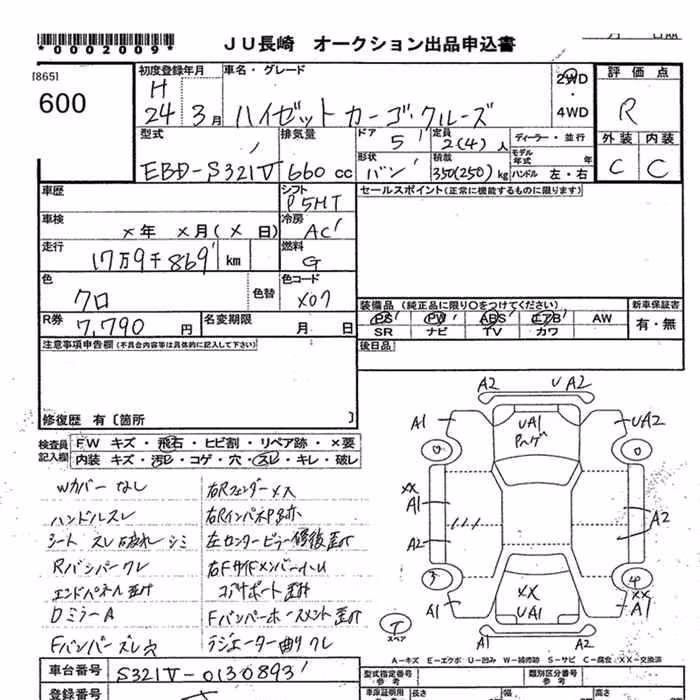 *0002009*
JU長崎 オークション出品申込書
[865]
600
初度登録年月
H
24年 3月
車名・グレード
ハイゼットカーゴ クルーズ
2WD
・
4WD
評価点
R
外装 内装
C C
型式
EBD-S321V
排気量
660 cc
ドア
5
定員
2(4) 人
ディーラー・並行
形状
バン
積載
350(250) kg
モデル年式 年
ハンドル 左・右
車歴
シフト
P5MT
セールスポイント(正常に機能するものに限ります)
車検
×年 ×月(× 日)
冷房
AC
走行
17万9千869 km
燃料
G
色
クロ
色替
色コード
X07
装備品 (純正品に限り〇をつけてください)
新車保証書
PS PW ABS エアB AW
有・無
SR ナビ TV カワ
R券
7,790 円
名変期限
月 日
注意事項申告欄(不具合内容等は具体的に記入して下さい)
後日品
修復歴 有〔箇所 〕
検査員記入欄
FW キズ・飛石・ヒビ割・リペア跡・×要
内装 キズ・汚レ・コゲ・穴・スレ・キレ・破レ
Wカバーなし
ハンドルスレ
シート スレ 破れ シミ
Rバンパークレ
エンドパネル歪み
DミラーA
Fバンパーズレ 穴
右Rフェンダーメス
右RインパネP跡
左センターピラー修復歪み
右Fサイドメンバー小U
コアサポート歪み
Fバンパーホースメント歪み
ラジエーター曲り クレ
A2 UA2
A1 UA1 UA2
Pヘゲ
XX
A1
A2
A2
XX
UA1
A1
XX
A1
A2
スペア
A-キズ E-エクボ U-凹み W-補修跡 S-サビ C-腐食 XX-交換済
車台番号
S321V-0130893
型式指定番号
参考
類別区分番号
参考
登録番号
車庫証明用
長さ
幅
高さ